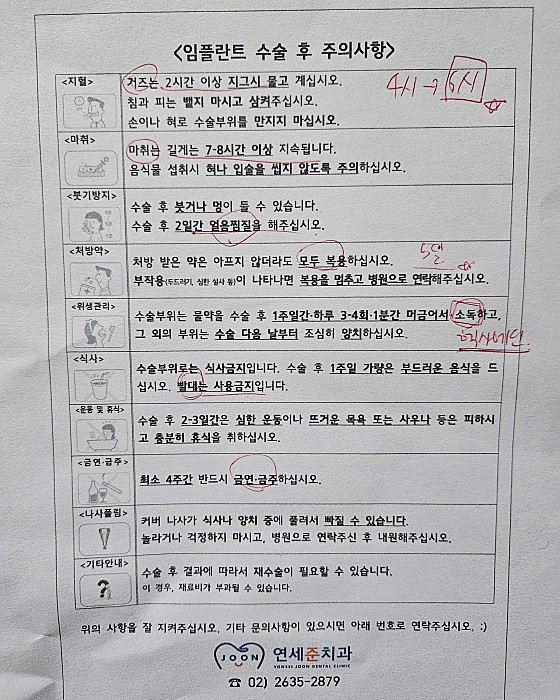 <임플란트 수술 후 주의사항>
<지혈>
거즈는 2시간 이상 지그시 물고 계십시오.
침과 피는 뱉지 마시고 삼켜주십시오.
손이나 혀로 수술부위를 만지지 마십시오.
4시 → 6시
<마취>
마취는 길게는 7-8시간 이상 지속됩니다.
음식물 섭취시 혀나 입술을 씹지 않도록 주의하십시오.
<붓기방지>
수술 후 붓거나 멍이 들 수 있습니다.
수술 후 2일간 얼음찜질을 해주십시오.
<처방약>
처방 받은 약은 아프지 않더라도 모두 복용하십시오.
부작용(두드러기, 심한 설사 등)이 나타나면 복용을 멈추고 병원으로 연락해주십시오.
<위생관리>
수술부위는 물약을 수술 후 1주일간·하루 3-4회·1분간 머금어서 소독하고,
그 외의 부위는 수술 다음 날부터 조심히 양치하십시오.
헥사메딘
<식사>
수술부위로는 식사금지입니다. 수술 후 1주일 가량은 부드러운 음식을 드
십시오. 빨대는 사용금지입니다.
<운동 및 휴식>
수술 후 2-3일간은 심한 운동이나 뜨거운 목욕 또는 사우나 등은 피하시
고 충분히 휴식을 취하십시오.
<금연·금주>
최소 4주간 반드시 금연·금주하십시오.
<나사풀림>
커버 나사가 식사나 양치 중에 풀려서 빠질 수 있습니다.
놀라거나 걱정하지 마시고, 병원으로 연락주신 후 내원해주십시오.
<기타안내>
수술 후 결과에 따라서 재수술이 필요할 수 있습니다.
이 경우, 재료비가 부과될 수 있습니다.
위의 사항을 잘 지켜주십시오. 기타 문의사항이 있으시면 아래 번호로 연락주십시오. :)
JOON 연세준치과
YONSEI JOON DENTAL CLINIC
☎ 02) 2635-2879